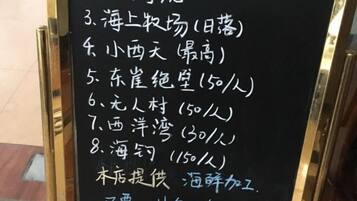 3.海上牧场(日落)
4.小西天(最高)
5.东崖绝壁(50/人)
6.无人村(50/人)
7.西洋湾(30/人)
8.海钓(150/人)
本店提供 海鲜加工.